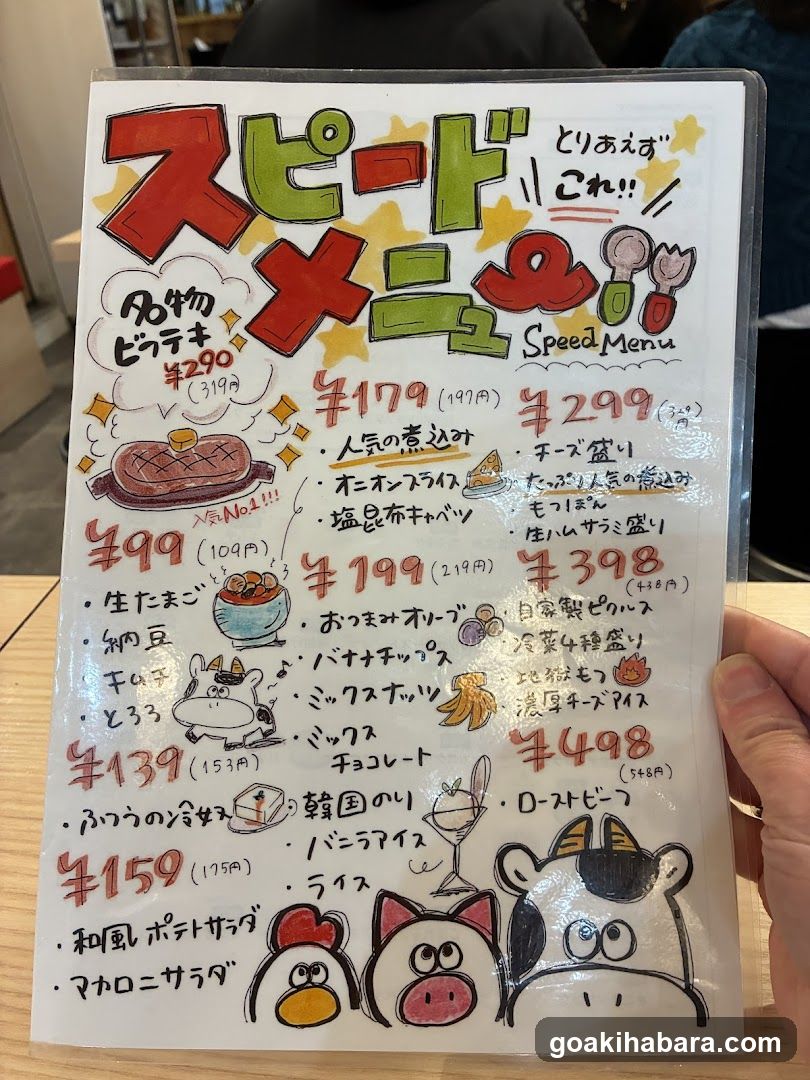 スピード
メニュー!!
とりあえず
これ!!
Speed Menu
名物
ビフテキ
¥290
(319円)
人気No.1!!!
¥99 (109円)
・生たまご
・納豆
・キムチ
・とろろ
¥139 (153円)
・ふつうの冷奴
¥159 (175円)
・和風ポテトサラダ
・マカロニサラダ
¥179 (197円)
・人気の煮込み
・オニオンスライス
・塩昆布キャベツ
¥199 (219円)
・おつまみオリーブ
・バナナチップス
・ミックスナッツ
・ミックス
チョコレート
・韓国のり
・バニラアイス
・ライス
¥299
・チーズ盛り
・たっぷり人気の煮込み
・もつぽん
・生ハムサラミ盛り
¥398
(438円)
・自家製ピクルス
・冷菜4種盛り
・地獄もつ
・濃厚チーズアイス
¥498
(548円)
・ローストビーフ
goakihabara.com